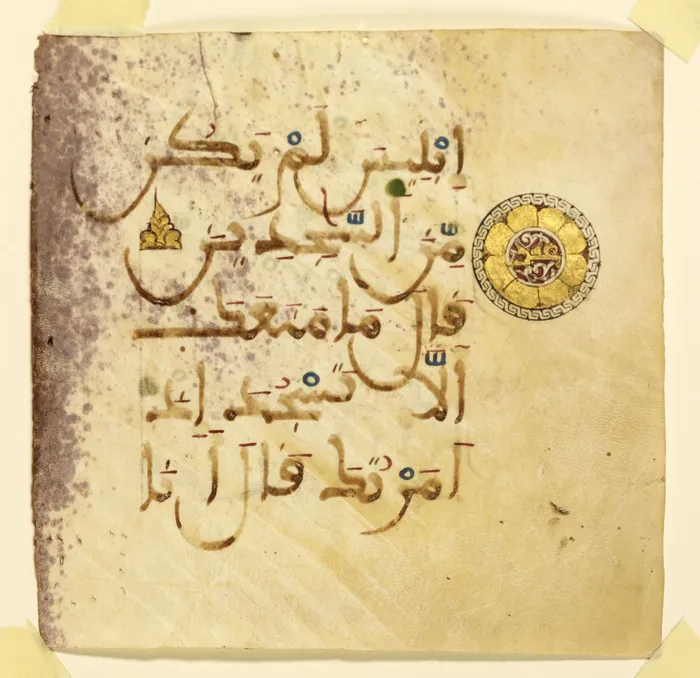 إِبْلِيسَ لَمْ يَكُن
مِّنَ ٱلسَّٰجِدِينَ
قَالَ مَا مَنَعَكَ
أَلَّا تَسْجُدَ إِذَ
أَمَرْتُكَ قَالَ أَنَا